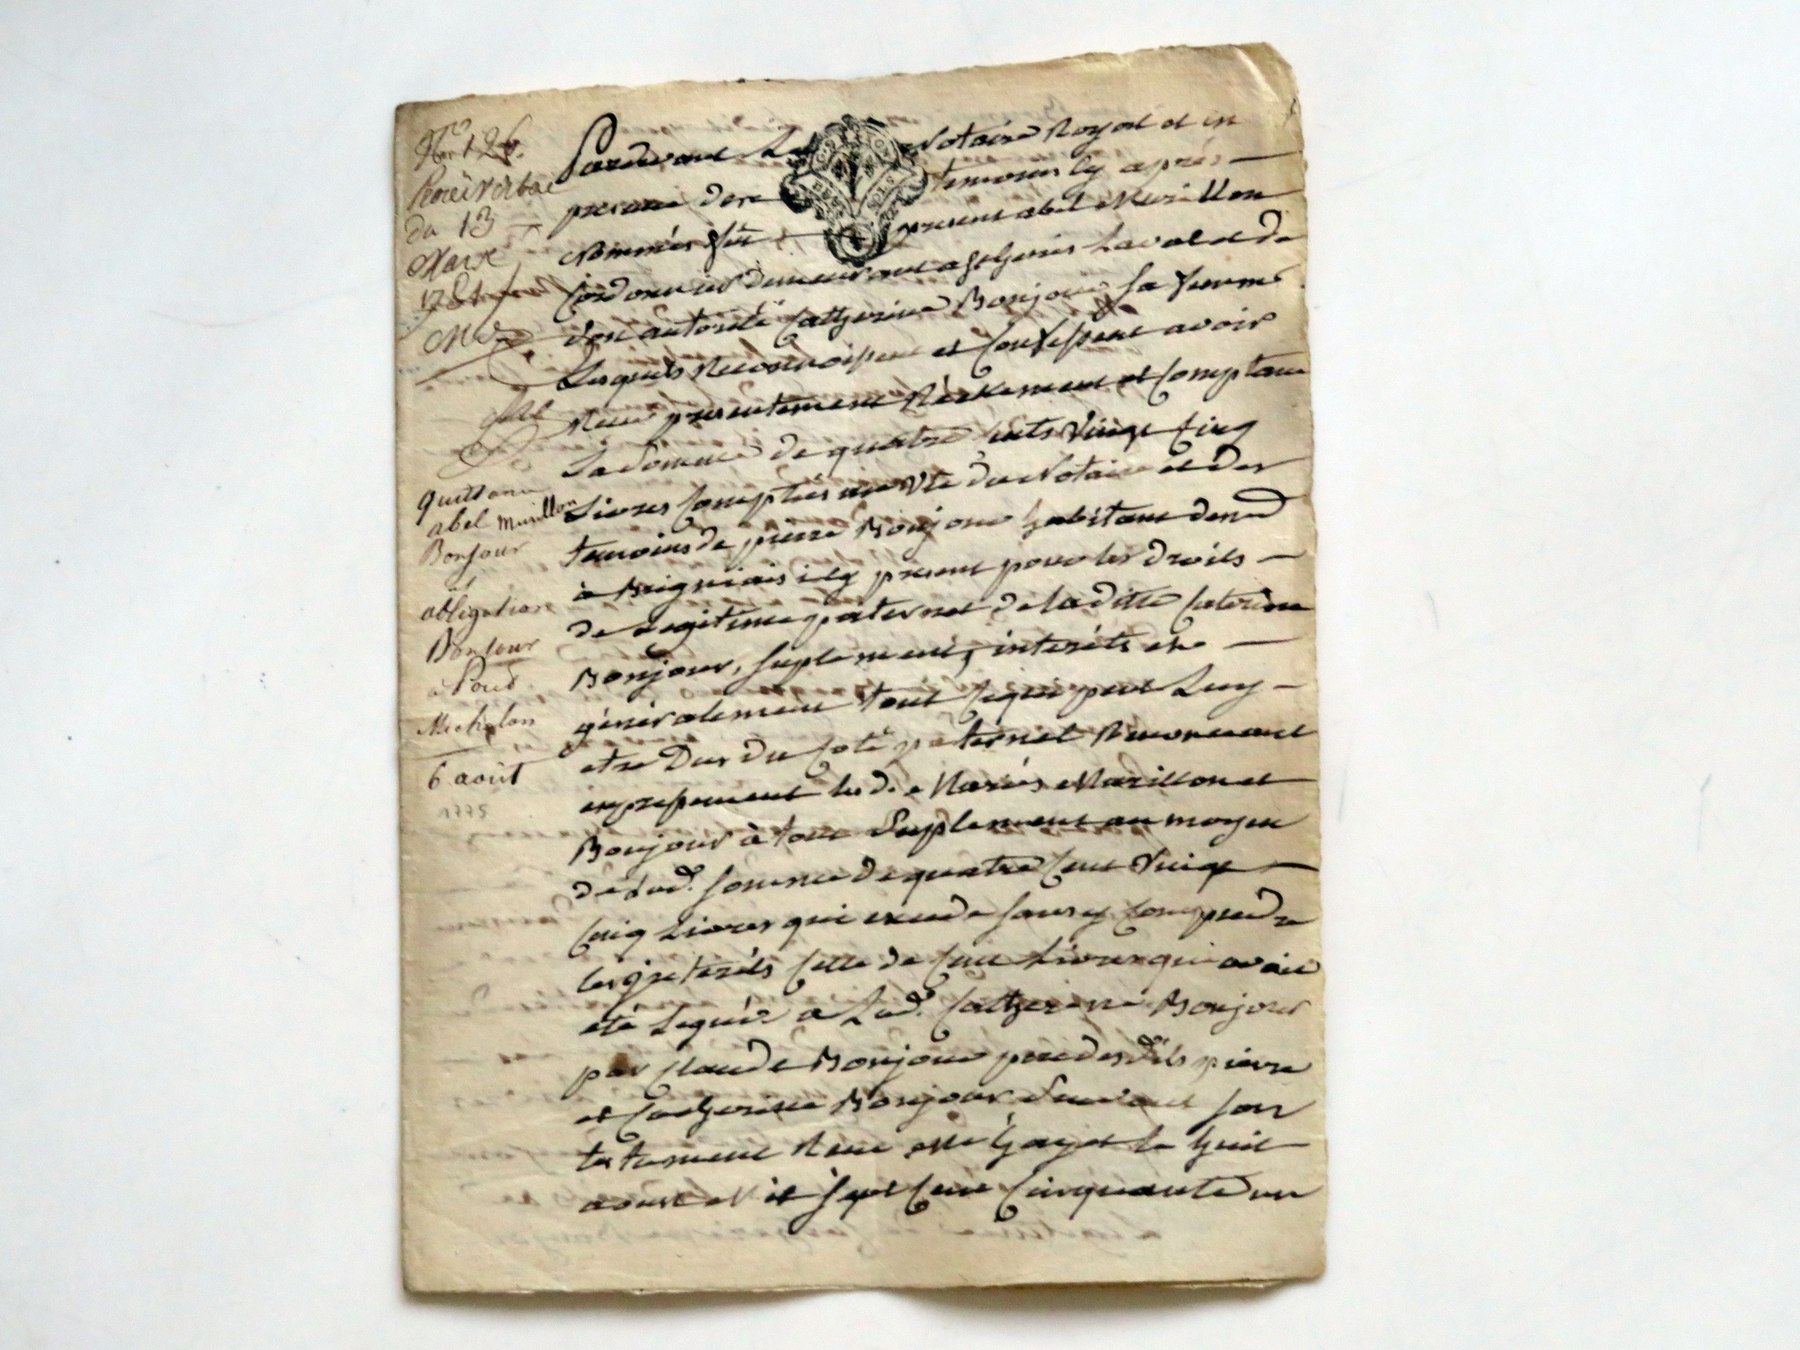 Nro 126.
Procès verbal
du 13
Mars
1781
quittance
abel murillon
Bonjour
et
obligation
Bonjour
a Poud
Michalon
6 août
1775
Pardevant Le Notaire Royal et en
presence des temoins cy après
nommés fut present abel Murillon
Cordonnier demeurant a Laval et de
son autorité Catherine Bonjour sa femme
Lesquels Reconnoissent et Confessent avoir
Reçu presentement Réellement et Comptant
La Somme de quatre cents vingt Cinq
Livres Comptées au vu du Notaire et des
temoins de pierre Bonjour habitant
à icy present pour les droits
de Legitime paternel de la ditte Caterine
Bonjour, suplement, interêts et
généralement tout ce qui peut Luy
etre Dus du Coté paternel Renonceant
expressement les d. Mariés Murillon et
Bonjour à tout Suplement au moyen
de lad. somme de quatre Cent Vingt
Cinq Livres qui excede sans y Comprendre
les interêts Celle de Cent Livres qui avait
eté Leguée a Lad. Catherine Bonjour
par Claude Bonjour pere desdits pierre
et Catherine Bonjour Suivant son
testament Reçu Me Gayet le huit
aoust Mil sept Cent Cinquante un